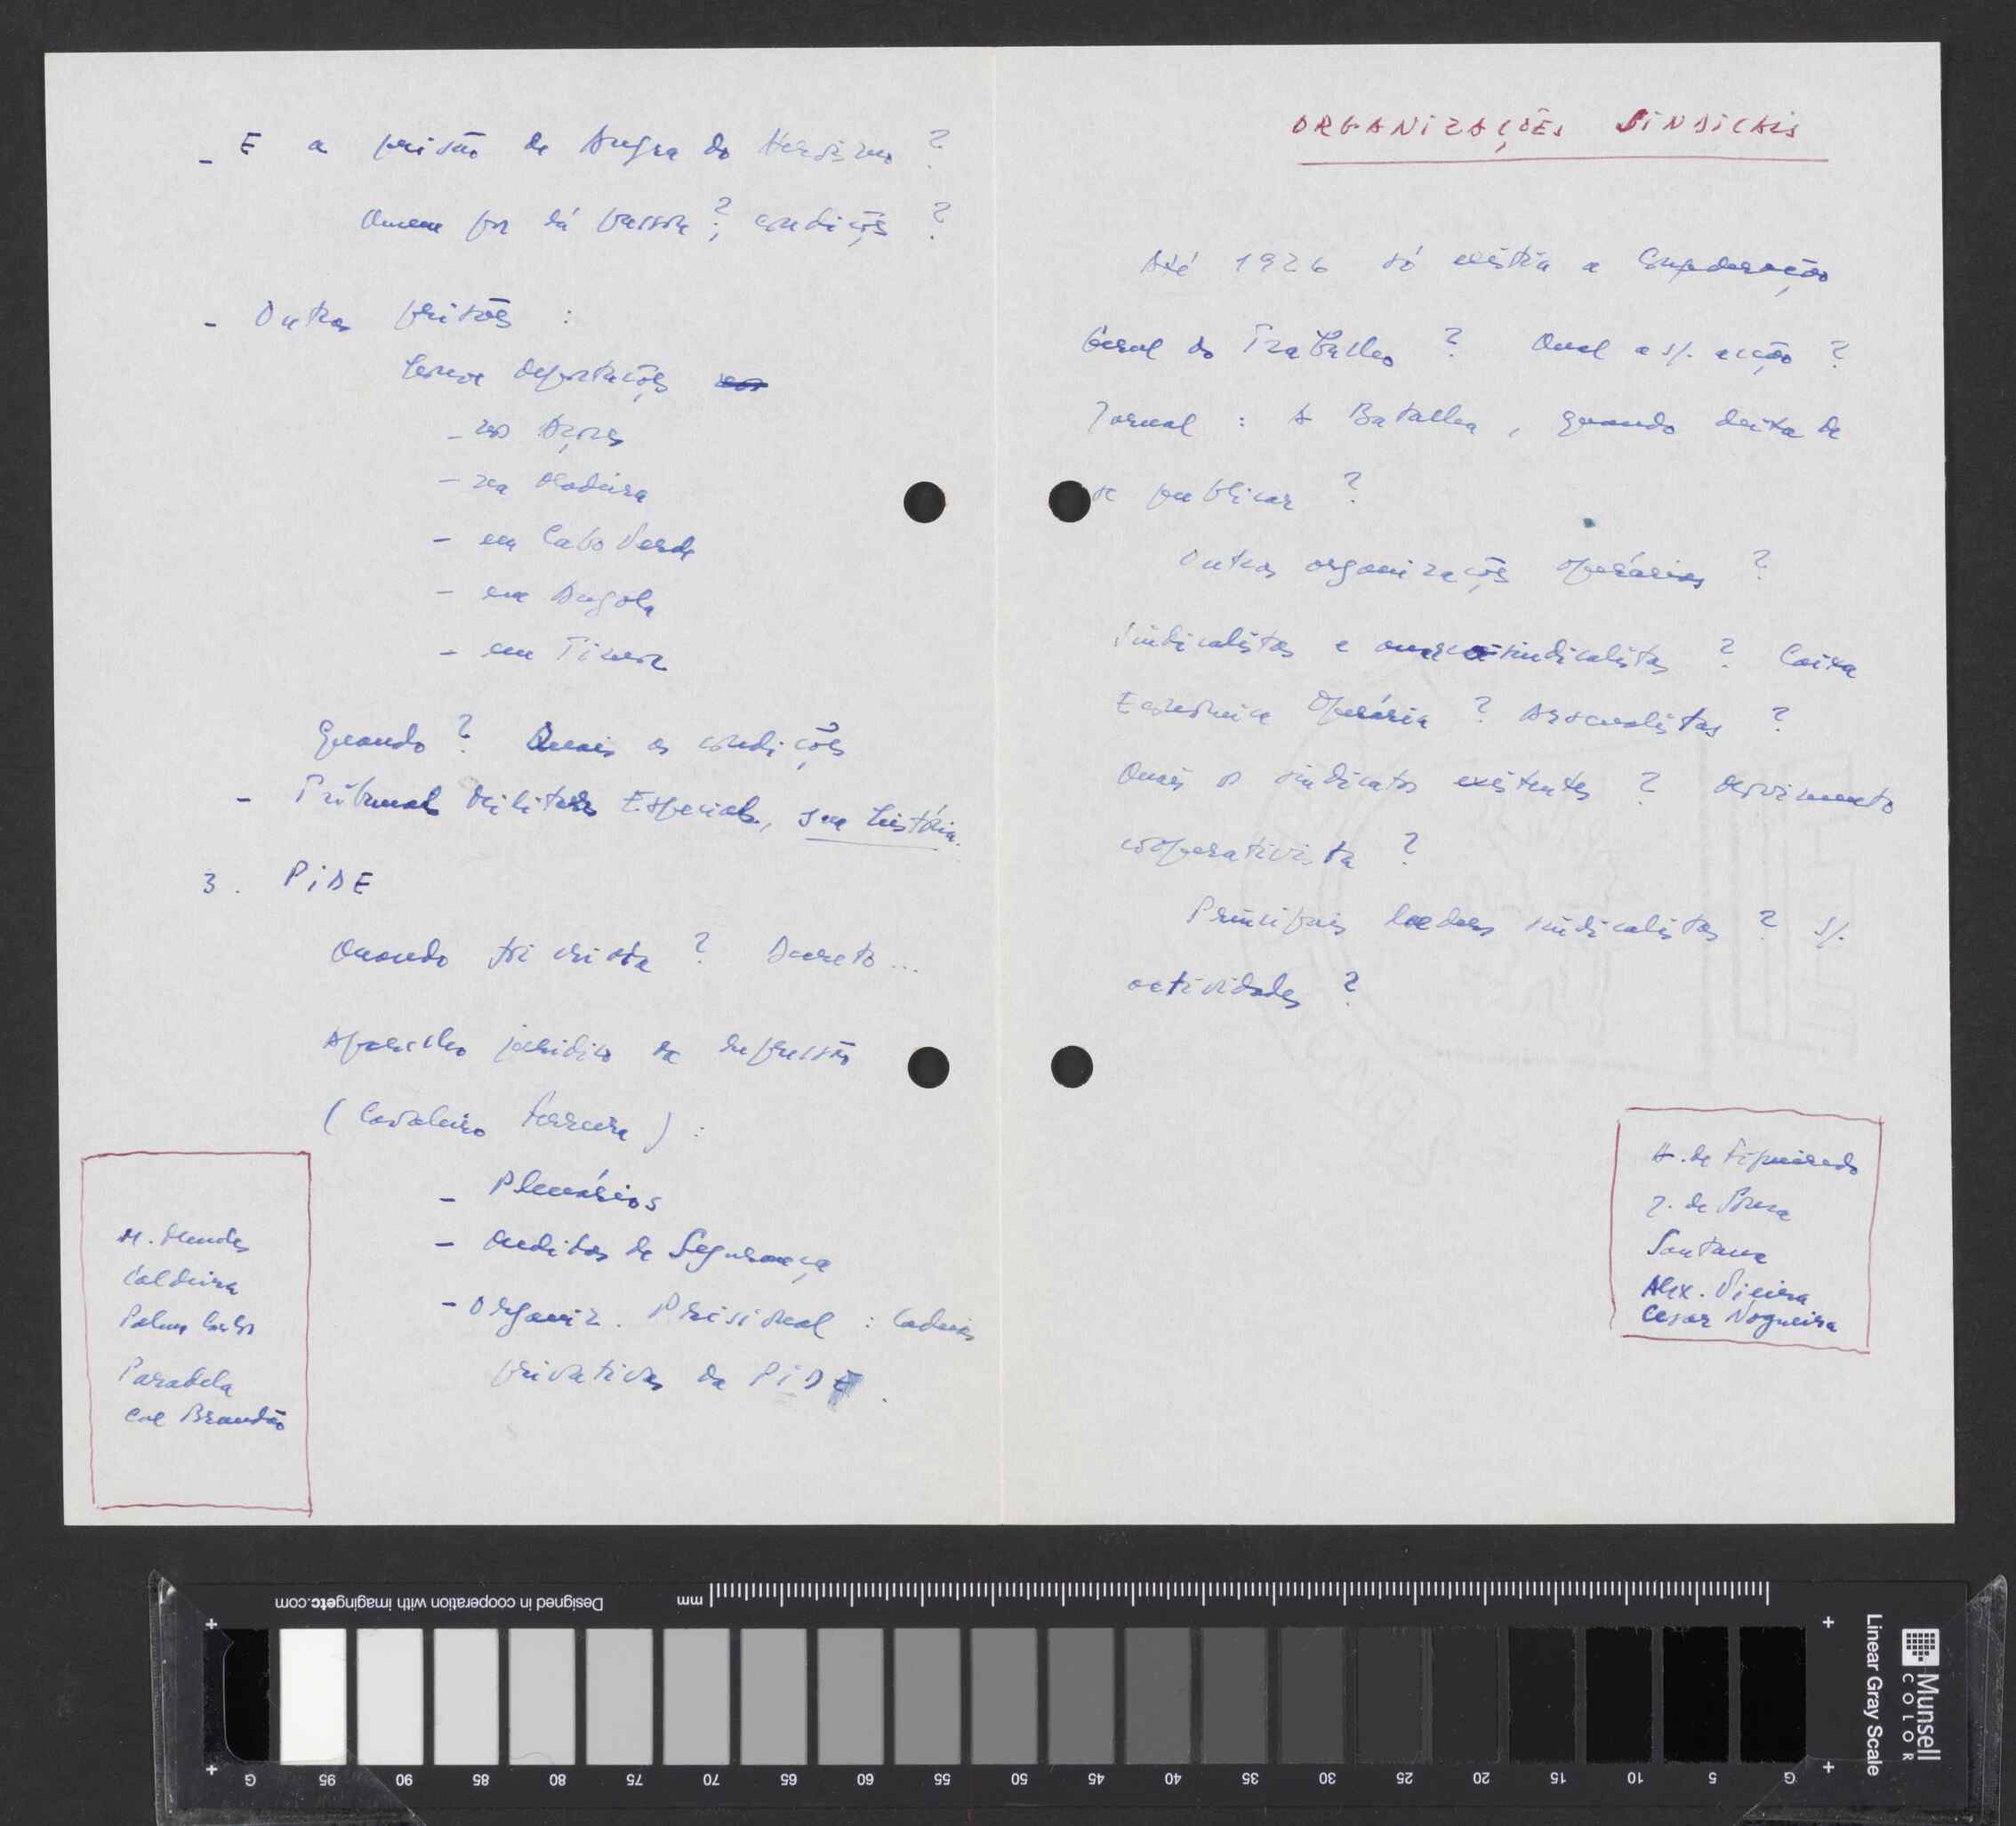 - E a prisão de Angra do Heroísmo ?
Quem por lá passou ?; condições ?
- Outras prisões :
houve deportações
- nos Açores
- na Madeira
- em Cabo Verde
- em Angola
- em Timor
Quando ? Quais as condições
- Tribunais Militares Especiais, sua história.
3. PIDE
Quando foi criada ? Decreto ...
Aparelho jurídico da repressão
(Cavaleiro Ferreira) :
- Plenários
- Medidas de Segurança
- Organiz. Prisional : Cadeias
privativas da PIDE.
M. Mendes
Caldeira
Palma
Paradela
Cal Brandão
ORGANIZAÇÕES SINDICAIS
Até 1926 só existia a Confederação
Geral do Trabalho ? Qual a s/. acção ?
Jornal : A Batalha, quando deixa de
se publicar ?
Outras organizações operárias ?
Sindicalistas e anarcosindicalistas ? Caixa
Económica Operária ? Arsenalistas ?
Quais os sindicatos existentes ? Movimento
cooperativista ?
Principais leaders sindicalistas ? S/.
actividades ?
A. de Figueiredo
J. de Sousa
Santana
Alex. Vieira
Cesar Nogueira
Designed in cooperation with imagingetc.com
mm
G 95 90 85 80 75 70 65 60 55 50 45 40 35 30 25 20 15 10 5 G
Linear Gray Scale
Munsell
COLOR